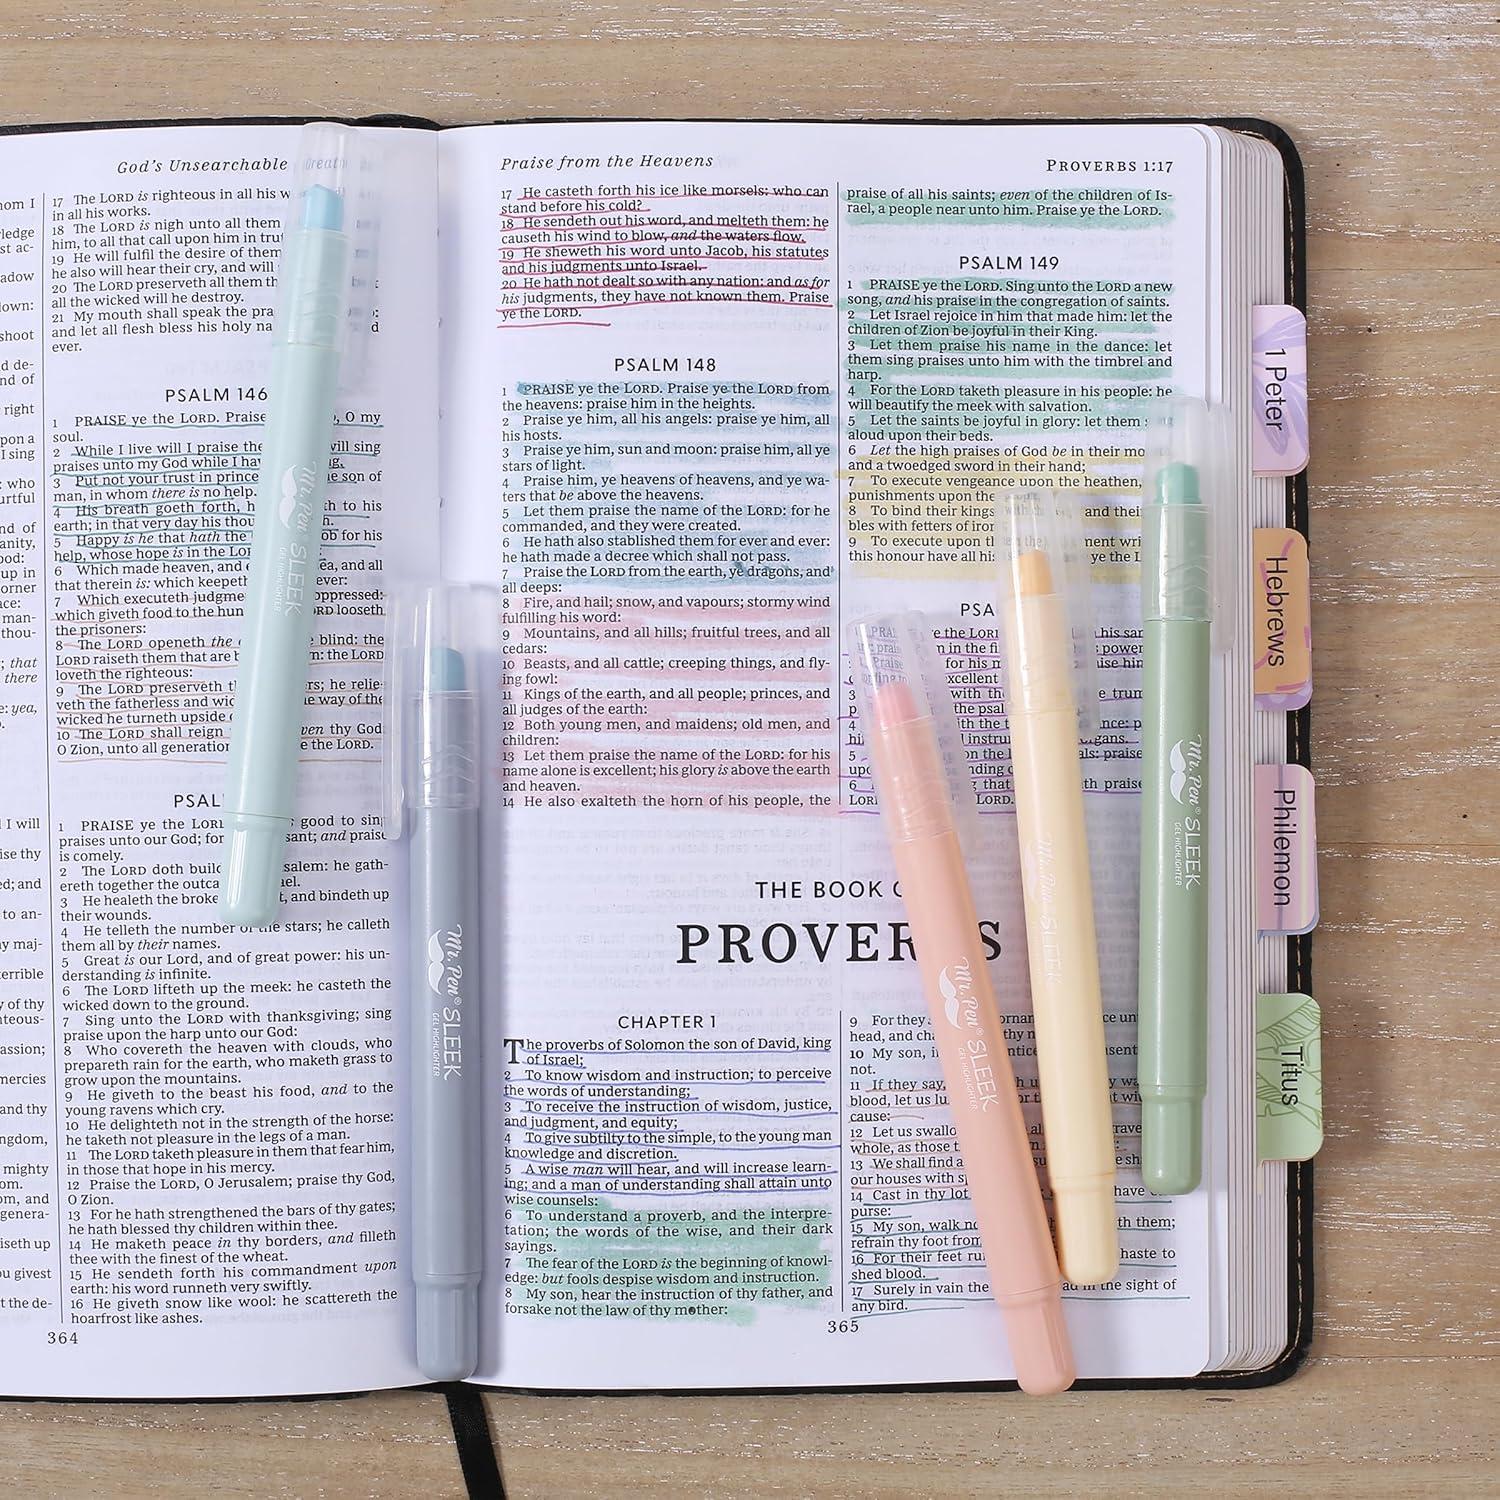 God's Unsearchable Great
17 The LORD is righteous in all his w
in all his works.
18 The LORD is nigh unto all them
him, to all that call upon him in tru
19 He will fulfil the desire of them
he also will hear their cry, and will
20 The LORD preserveth all them th
all the wicked will he destroy.
21 My mouth shall speak the pra
and let all flesh bless his holy na
ever.
PSALM 146
1 PRAISE ye the LORD. Praise O my
soul.
2 While I live will I praise the will sing
praises unto my God while I hav
3 Put not your trust in princ son of
man, in whom there is no help.
4 His breath goeth forth, h th to his
earth; in that very day his thou
5 Happy is he that hath the ob for his
help, whose hope is in the LOR
6 Which made heaven, and e ea, and all
that therein is: which keepeth ever:
7 Which executeth judgme oppressed:
which giveth food to the hun LORD looseth
the prisoners:
8 The LORD openeth the blind: the
LORD raiseth them that are b n: the LORD
loveth the righteous:
9 The LORD preserveth th rs; he relie-
veth the fatherless and wid way of the
wicked he turneth upside
10 The LORD shall reign even thy God
O Zion, unto all generation e the LORD.
PSAL
1 PRAISE ye the LORD good to sing
praises unto our God; for sant; and praise
is comely.
2 The LORD doth build salem: he gath-
ereth together the outca ael.
3 He healeth the broke and bindeth up
their wounds.
4 He telleth the number of the stars; he calleth
them all by their names.
5 Great is our Lord, and of great power: his un-
derstanding is infinite.
6 The LORD lifteth up the meek: he casteth the
wicked down to the ground.
7 Sing unto the LORD with thanksgiving; sing
praise upon the harp unto our God:
8 Who covereth the heaven with clouds, who
prepareth rain for the earth, who maketh grass to
grow upon the mountains.
9 He giveth to the beast his food, and to the
young ravens which cry.
10 He delighteth not in the strength of the horse:
he taketh not pleasure in the legs of a man.
11 The LORD taketh pleasure in them that fear him,
in those that hope in his mercy.
12 Praise the LORD, O Jerusalem; praise thy God,
O Zion.
13 For he hath strengthened the bars of thy gates;
he hath blessed thy children within thee.
14 He maketh peace in thy borders, and filleth
thee with the finest of the wheat.
15 He sendeth forth his commandment upon
earth: his word runneth very swiftly.
16 He giveth snow like wool: he scattereth the
hoarfrost like ashes.
364
Praise from the Heavens
PROVERBS 1:17
17 He casteth forth his ice like morsels: who can
stand before his cold?
18 He sendeth out his word, and melteth them: he
causeth his wind to blow, and the waters flow.
19 He sheweth his word unto Jacob, his statutes
and his judgments unto Israel.
20 He hath not dealt so with any nation: and as for
his judgments, they have not known them. Praise
ye the LORD.
PSALM 148
1 PRAISE ye the LORD. Praise ye the LORD from
the heavens: praise him in the heights.
2 Praise ye him, all his angels: praise ye him, all
his hosts.
3 Praise ye him, sun and moon: praise him, all ye
stars of light.
4 Praise him, ye heavens of heavens, and ye wa-
ters that be above the heavens.
5 Let them praise the name of the LORD: for he
commanded, and they were created.
6 He hath also stablished them for ever and ever:
he hath made a decree which shall not pass.
7 Praise the LORD from the earth, ye dragons, and
all deeps:
8 Fire, and hail; snow, and vapours; stormy wind
fulfilling his word:
9 Mountains, and all hills; fruitful trees, and all
cedars:
10 Beasts, and all cattle; creeping things, and fly-
ing fowl:
11 Kings of the earth, and all people; princes, and
all judges of the earth:
12 Both young men, and maidens; old men, and
children:
13 Let them praise the name of the LORD: for his
name alone is excellent; his glory is above the earth
and heaven.
14 He also exalteth the horn of his people, the
praise of all his saints; even of the children of Is-
rael, a people near unto him. Praise ye the LORD.
PSALM 149
1 PRAISE ye the LORD. Sing unto the LORD a new
song, and his praise in the congregation of saints.
2 Let Israel rejoice in him that made him: let the
children of Zion be joyful in their King.
3 Let them praise his name in the dance: let
them sing praises unto him with the timbrel and
harp.
4 For the LORD taketh pleasure in his people: he
will beautify the meek with salvation.
5 Let the saints be joyful in glory: let them
aloud upon their beds.
6 Let the high praises of God be in their mo
and a twoedged sword in their hand;
7 To execute vengeance upon the heathen,
punishments upon the
8 To bind their kings with and their
bles with fetters of iron
9 To execute upon th ment writ
this honour have all his ye the L
PSA
THE BOOK O
PROVERBS
CHAPTER 1
The proverbs of Solomon the son of David, king
of Israel;
2 To know wisdom and instruction; to perceive
the words of understanding;
3 To receive the instruction of wisdom, justice,
and judgment, and equity;
4 To give subtilty to the simple, to the young man
knowledge and discretion.
5 A wise man will hear, and will increase learn-
ing; and a man of understanding shall attain unto
wise counsels:
6 To understand a proverb, and the interpre-
tation; the words of the wise, and their dark
sayings.
7 The fear of the LORD is the beginning of knowl-
edge: but fools despise wisdom and instruction.
8 My son, hear the instruction of thy father, and
forsake not the law of thy mother:
9 For they
head, and
10 My son, i
not.
11 If they say,
blood, let us lu
cause:
12 Let us swallo
whole, as those
13 We shall find a
our houses with sp
14 Cast in thy lot
purse:
15 My son, walk no them;
refrain thy foot from
16 For their feet ru haste to
shed blood.
17 Surely in vain the in the sight of
any bird.
365
1 Peter
Hebrews
Philemon
Titus
Mr. Pen® SLEEK
GEL HIGHLIGHTER
Mr. Pen® SLEEK
GEL HIGHLIGHTER
Mr. Pen® SLEEK
GEL HIGHLIGHTER
Mr. Pen® SLEEK
Mr. Pen® SLEEK
GEL HIGHLIGHTER